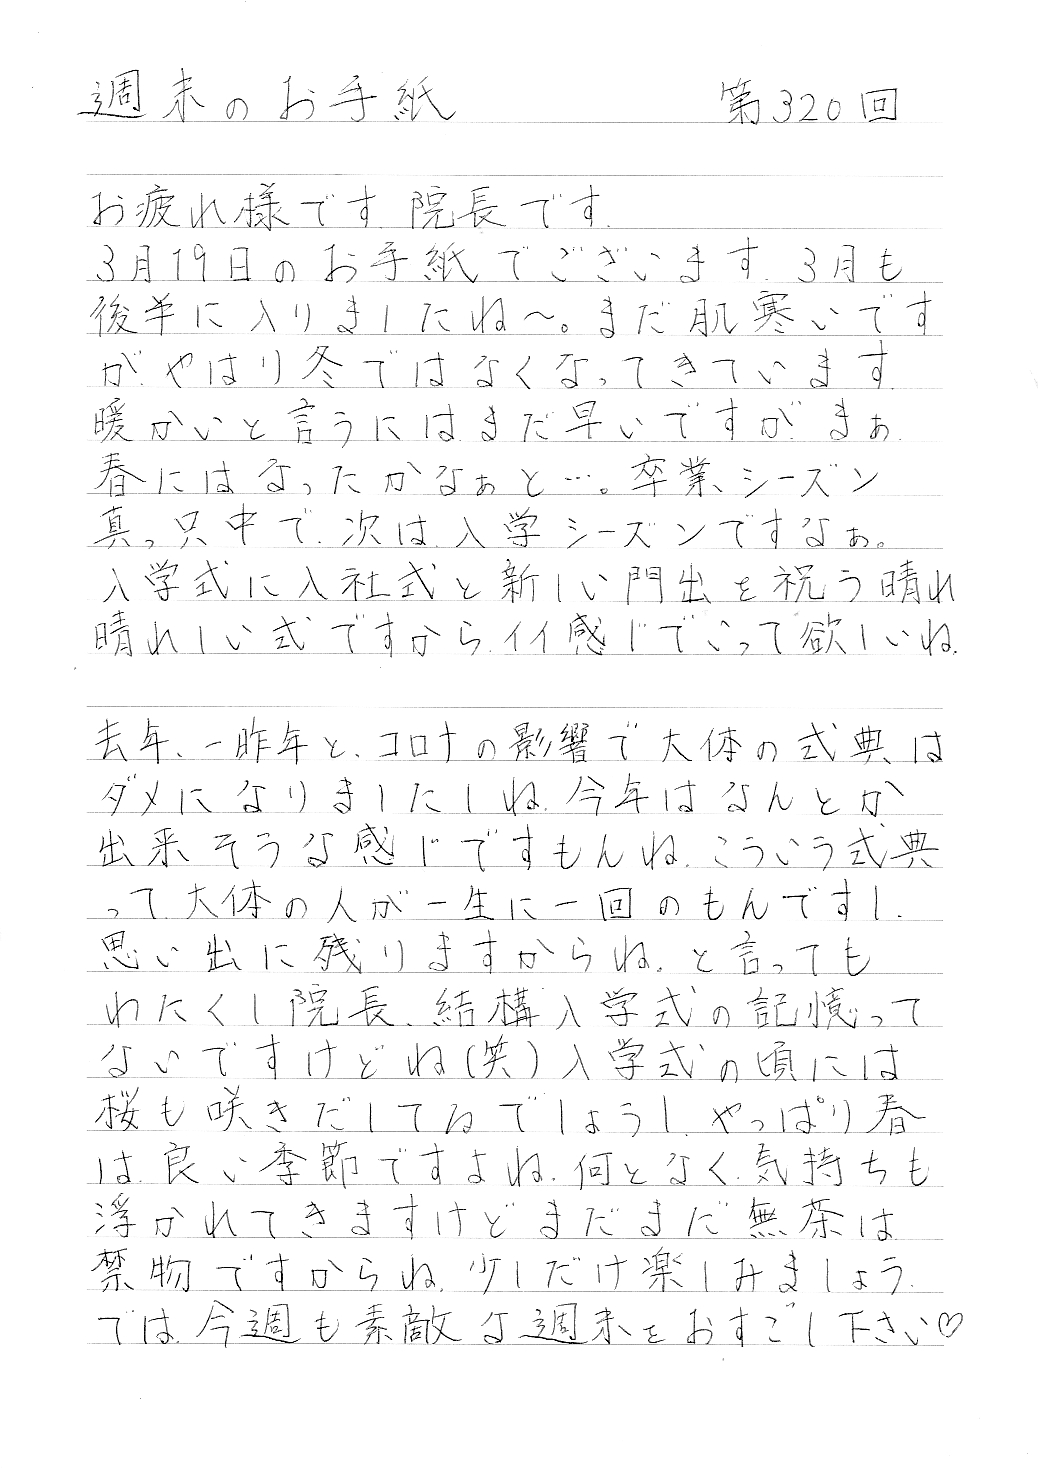 週末のお手紙 第320回
お疲れ様です.院長です.
3月19日のお手紙でございます.3月も
後半に入りましたね～。まだ肌寒いです
が.やはり冬ではなくなってきています.
暖かいと言うにはまだ早いですが.まぁ.
春にはなったかなぁと…。卒業、シーズン
真っ只中で.次は.入学シーズンですなぁ。
入学式に入社式と新しい門出を祝う晴れ
晴れしい式ですから.イイ感じでいって欲しいね.
去年、一昨年と、コロナの影響で大体の式典は
ダメになりましたしね.今年はなんとか
出来そうな感じですもんね.こういう式典
って.大体の人が一生に一回のもんですし.
思い出に残りますからね.と言っても
わたくし院長.結構入学式の記憶って
ないですけどね(笑)入学式の頃には
桜も咲きだしてるでしょうし.やっぱり春
は.良い季節ですよね.何となく.気持ちも
浮かれてきますけどまだまだ無茶は
禁物ですからね.少しだけ楽しみましょう.
では.今週も素敵な週末をおすごし下さい♡